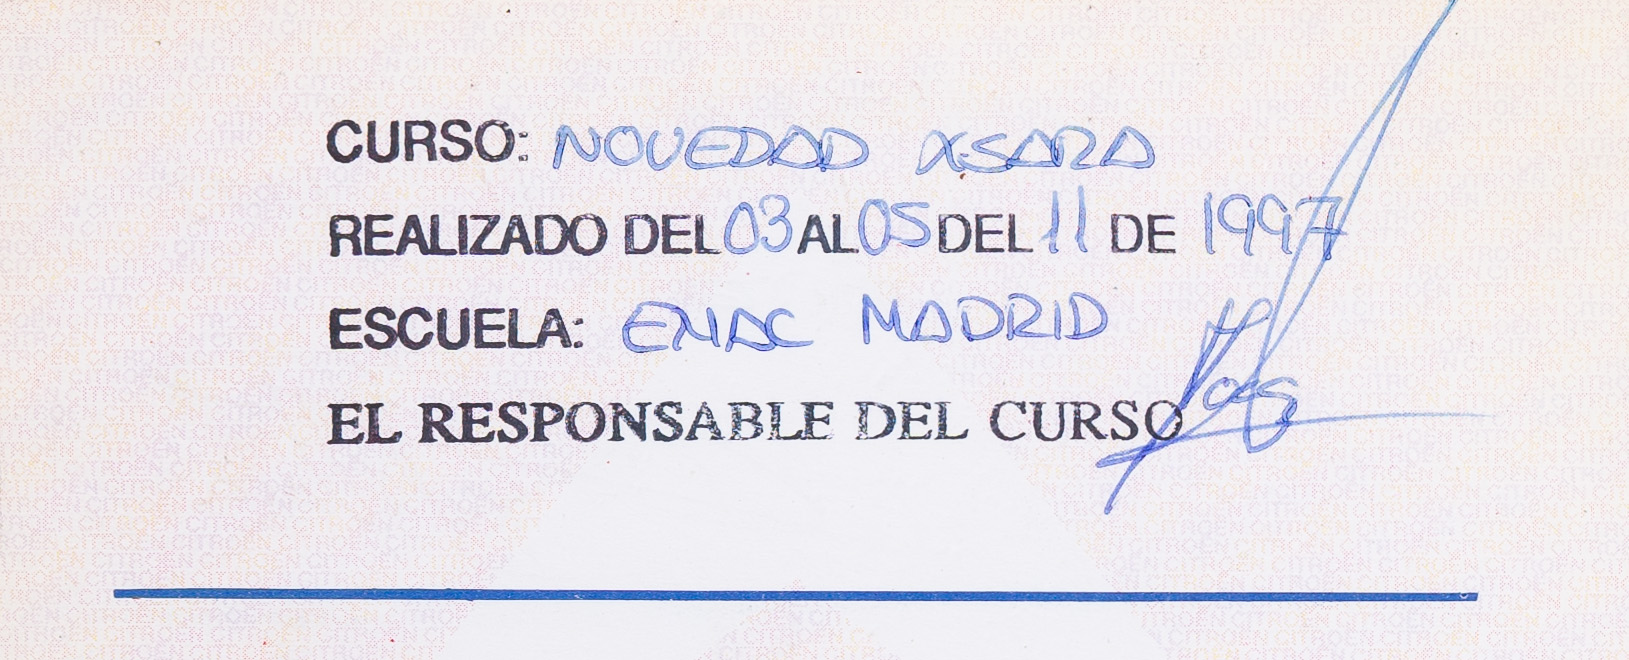 CURSO: NOVEDAD XSARA
REALIZADO DEL 03 AL 05 DEL 11 DE 1997
ESCUELA: ENAC MADRID
EL RESPONSABLE DEL CURSO